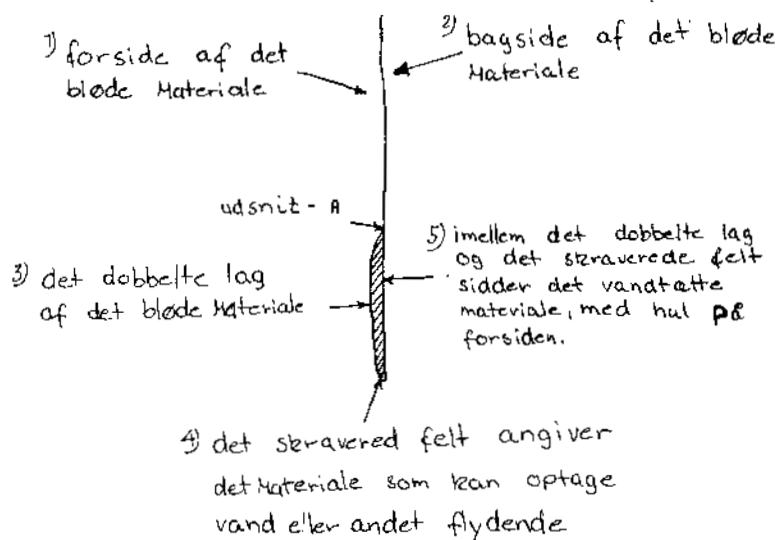 1) forside af det
bløde Materiale
2) bagside af det bløde
Materiale
udsnit - A
3) det dobbelte lag
af det bløde Materiale
5) imellem det dobbelte lag
og det skraverede felt
sidder det vandtatte
materiale, med hul på
forsiden.
4) det skravered felt angiver
det Materiale som kan optage
vand eller andet flydende